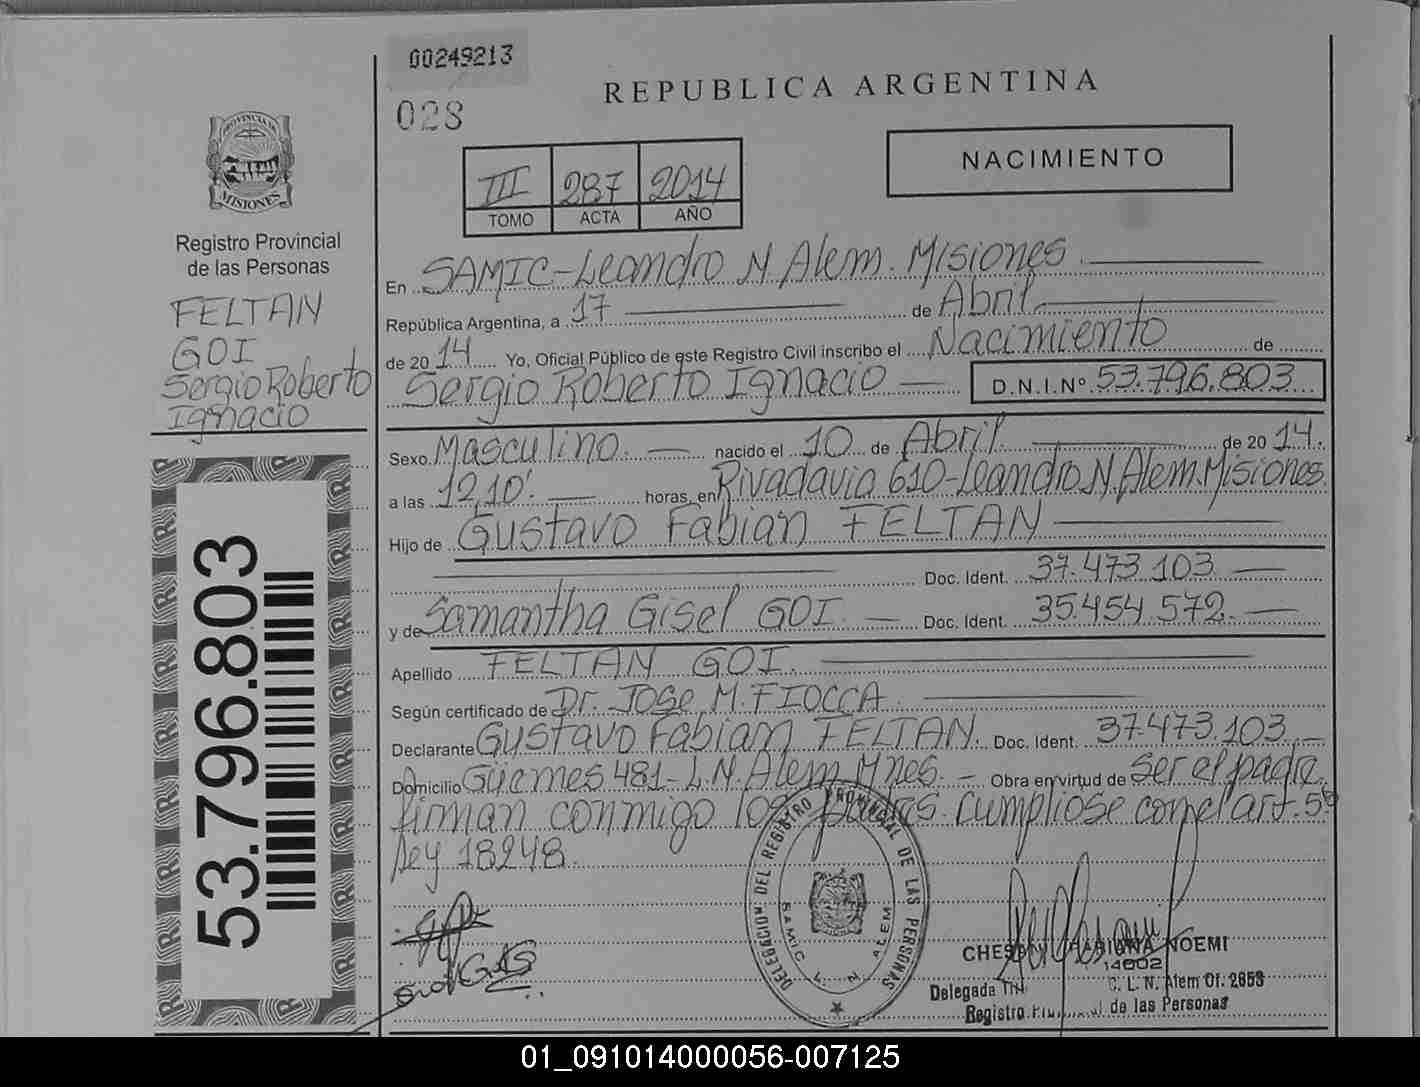 00249213
028
REPUBLICA ARGENTINA
PROVINCIA DE
MISIONES
Registro Provincial
de las Personas
FELTAN
GOI
Sergio Roberto
Ignacio
III 287 2014
TOMO ACTA AÑO
NACIMIENTO
En SAMIC-Leandro N Alem. Misiones
República Argentina, a 17 de Abril
de 20 14 Yo, Oficial Público de este Registro Civil inscribo el Nacimiento de
Sergio Roberto Ignacio D.N.I.Nº 53.796.803
Sexo Masculino. nacido el 10 de Abril. de 20 14.
a las 12,10'. horas, en Rivadavia 610-Leandro N. Alem. Misiones.
Hijo de Gustavo Fabian FELTAN
Doc. Ident. 37.473.103
y de Samantha Gisel GOI. Doc. Ident. 35.454.572.
Apellido FELTAN GOI.
Según certificado de Dr. JOSE M. FIOCCA
Declarante Gustavo Fabian FELTAN. Doc. Ident. 37.473.103
Domicilio Güemes 481-L.N. Alem Mnes. Obra en virtud de ser el padre.
firman conmigo los padres. Cumpliose con el art. 5º
Ley 18248.
53.796.803
DELEGACION DEL REGISTRO PROVINCIAL DE LAS PERSONAS
SAMIC L. N. ALEM
FABIANA NOEMI
14002
Delegada C. L. N. Alem Of. 2853
Registro de las Personas
01_091014000056-007125